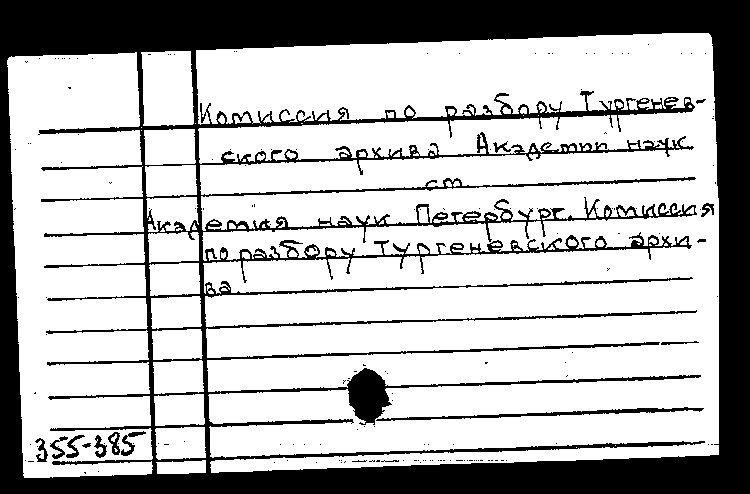 Комиссия по разбору Тургенев-
ского архива Академии наук
см.
Академия наук. Петербург. Комиссия
по разбору Тургеневского архи-
ва.
355-385